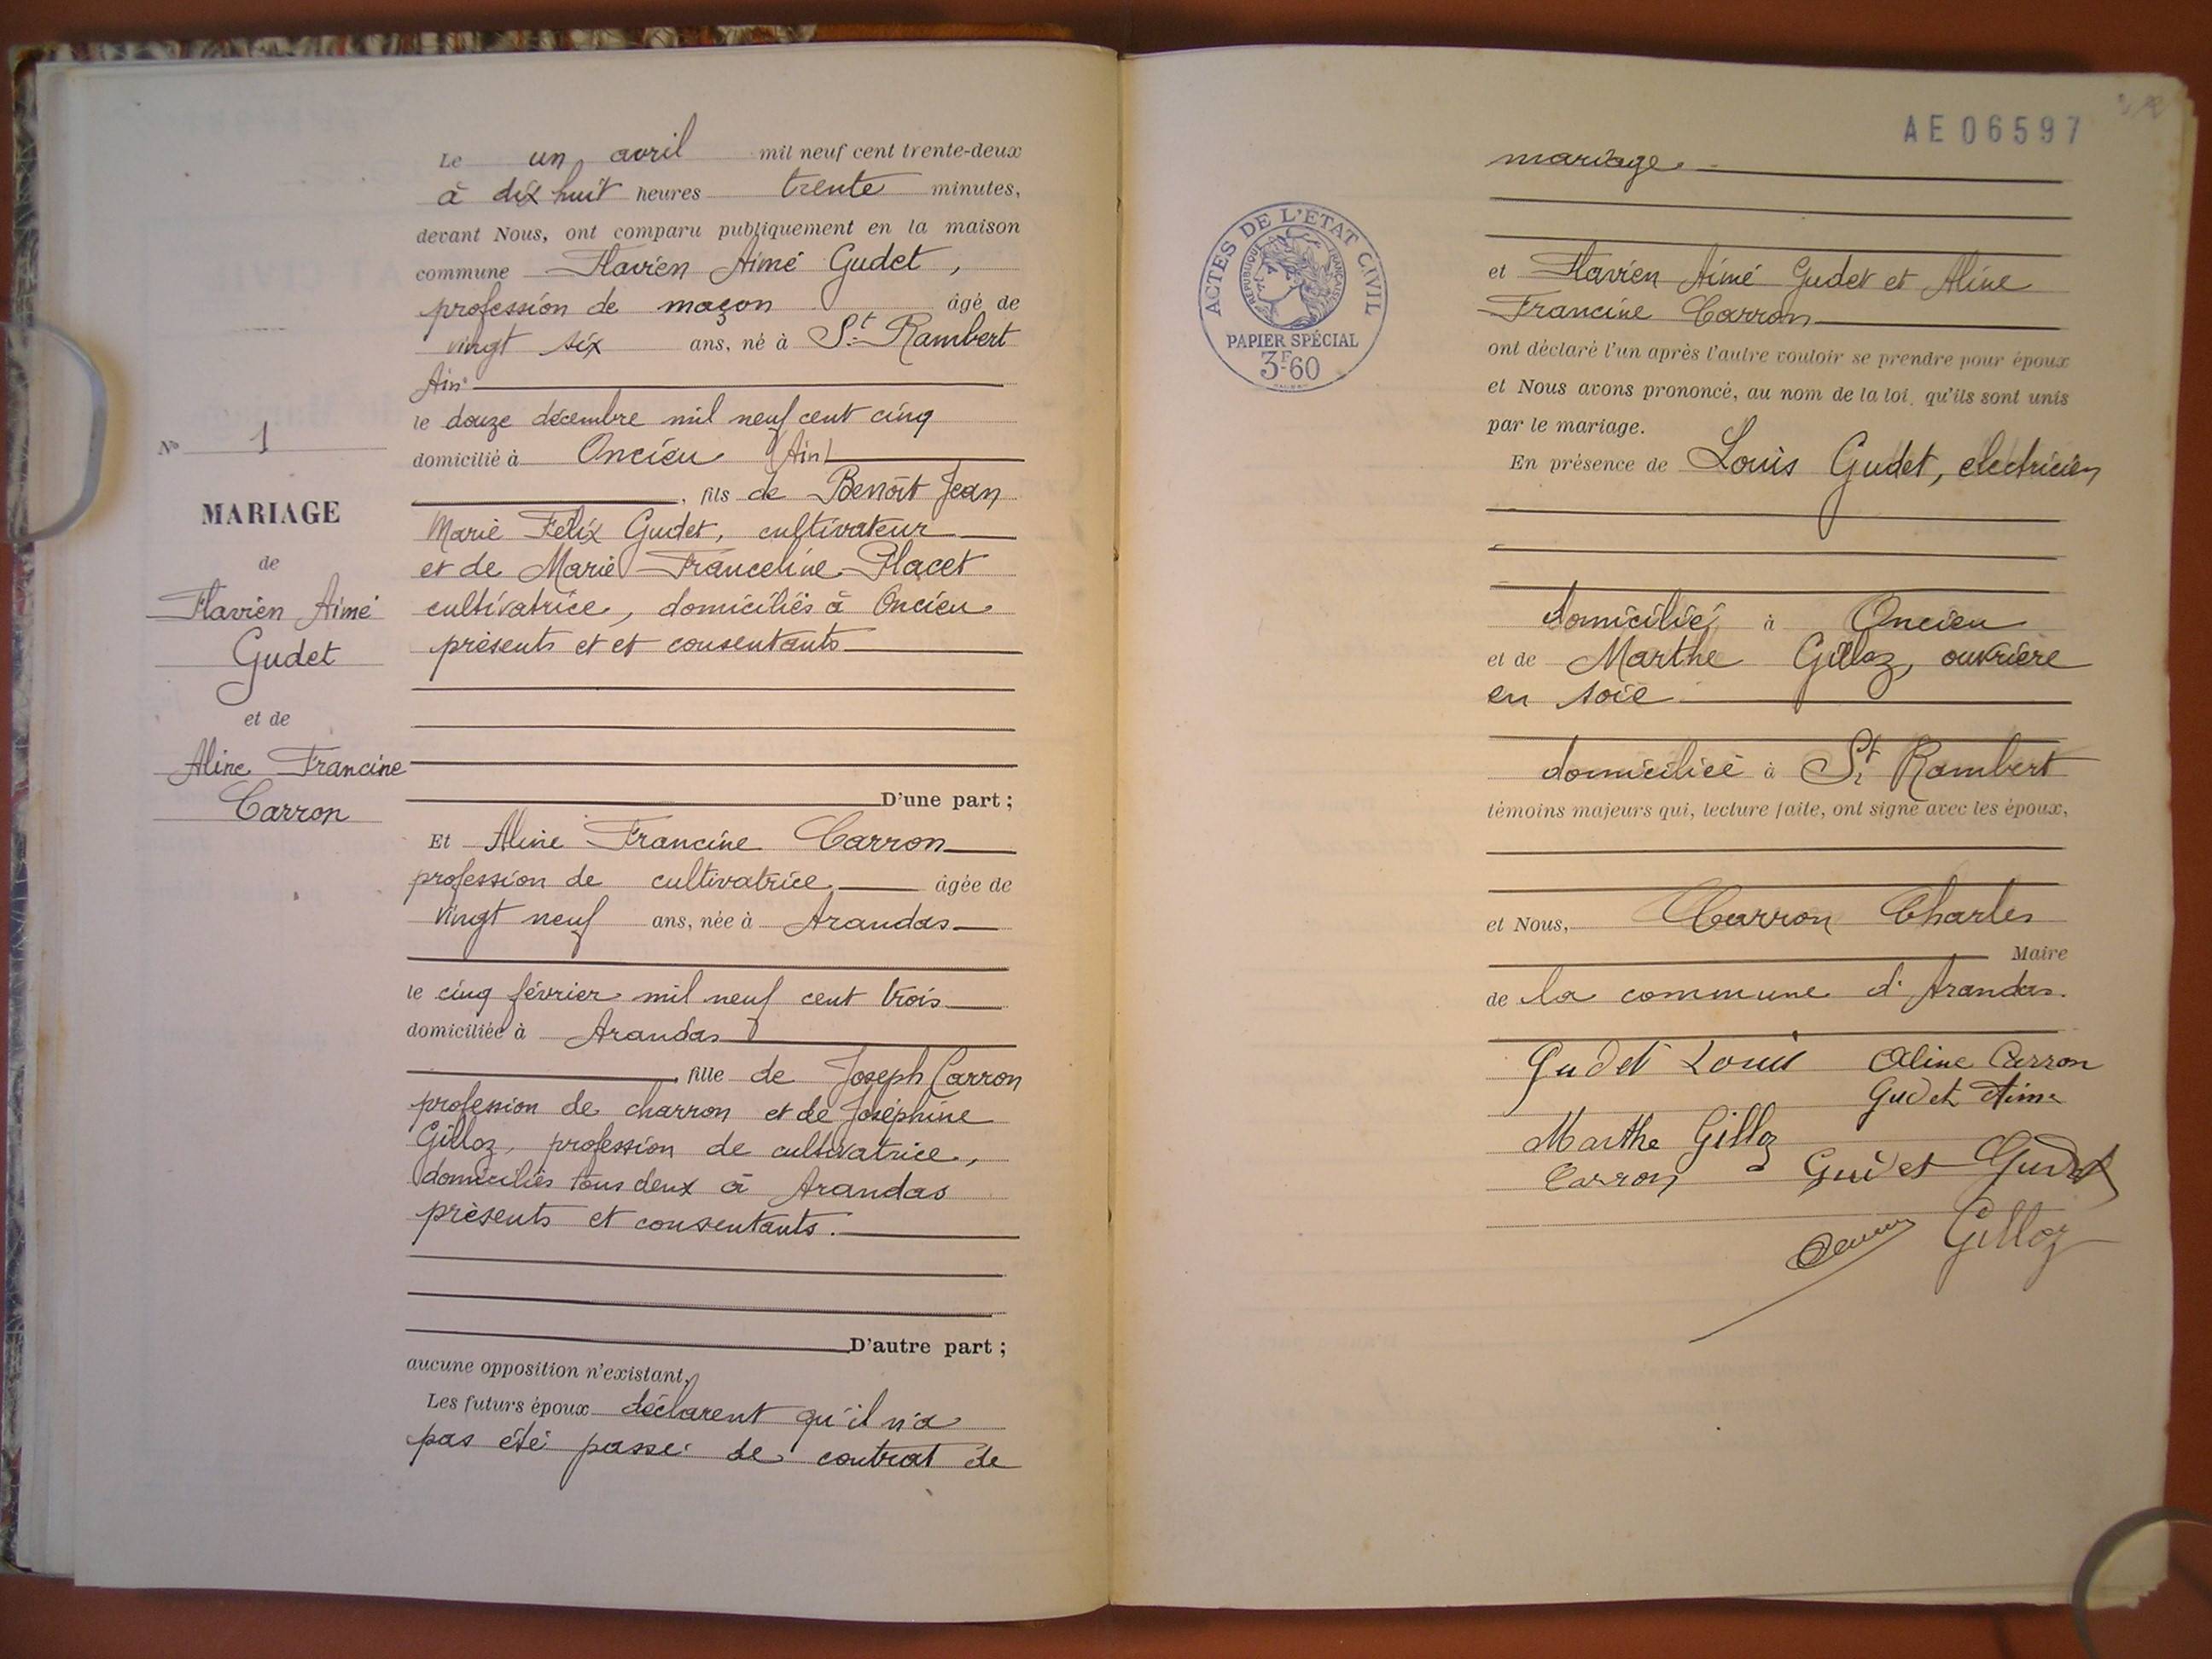 Le un avril mil neuf cent trente-deux
à dix huit heures trente minutes,
devant Nous, ont comparu publiquement en la maison
commune Flavien Aimé Gudet,
profession de maçon âgé de
vingt six ans, né à St Rambert
Ain
le douze décembre mil neuf cent cinq
domicilié à Oncieu (Ain)
, fils de Benoît Jean
Marie Félix Gudet, cultivateur
et de Marie Franceline Plaçet
cultivatrice, domiciliés à Oncieu
présents et et consentants
D'une part ;
Et Aline Francine Carron
profession de cultivatrice âgée de
vingt neuf ans, née à Arandas
le cinq février mil neuf cent trois
domiciliée à Arandas
, fille de Joseph Carron
profession de charron et de Joséphine
Gilloz, profession de cultivatrice,
domiciliés tous deux à Arandas
présents et consentants.
D'autre part ;
aucune opposition n'existant,
Les futurs époux déclarent qu'il n'a
pas été passé de contrat de
No 1
MARIAGE
de
Flavien Aimé
Gudet
et de
Aline Francine
Carron
AE 06597
mariage
ACTES DE L'ÉTAT CIVIL
RÉPUBLIQUE FRANÇAISE
PAPIER SPÉCIAL
3F60
et Flavien Aimé Gudet et Aline
Francine Carron
ont déclaré l'un après l'autre vouloir se prendre pour époux
et Nous avons prononcé, au nom de la loi, qu'ils sont unis
par le mariage.
En présence de Louis Gudet, electricien
domicilié à Oncieu
et de Marthe Gilloz, ouvrière
en soie
domiciliée à St Rambert
témoins majeurs qui, lecture faite, ont signé avec les époux,
et Nous, Carron Charles
Maire
de la commune d'Arandas.
Gudet Louis Aline Carron
Gudet Aimé
Marthe Gilloz
Carron Gudet Gudet
Gilloz